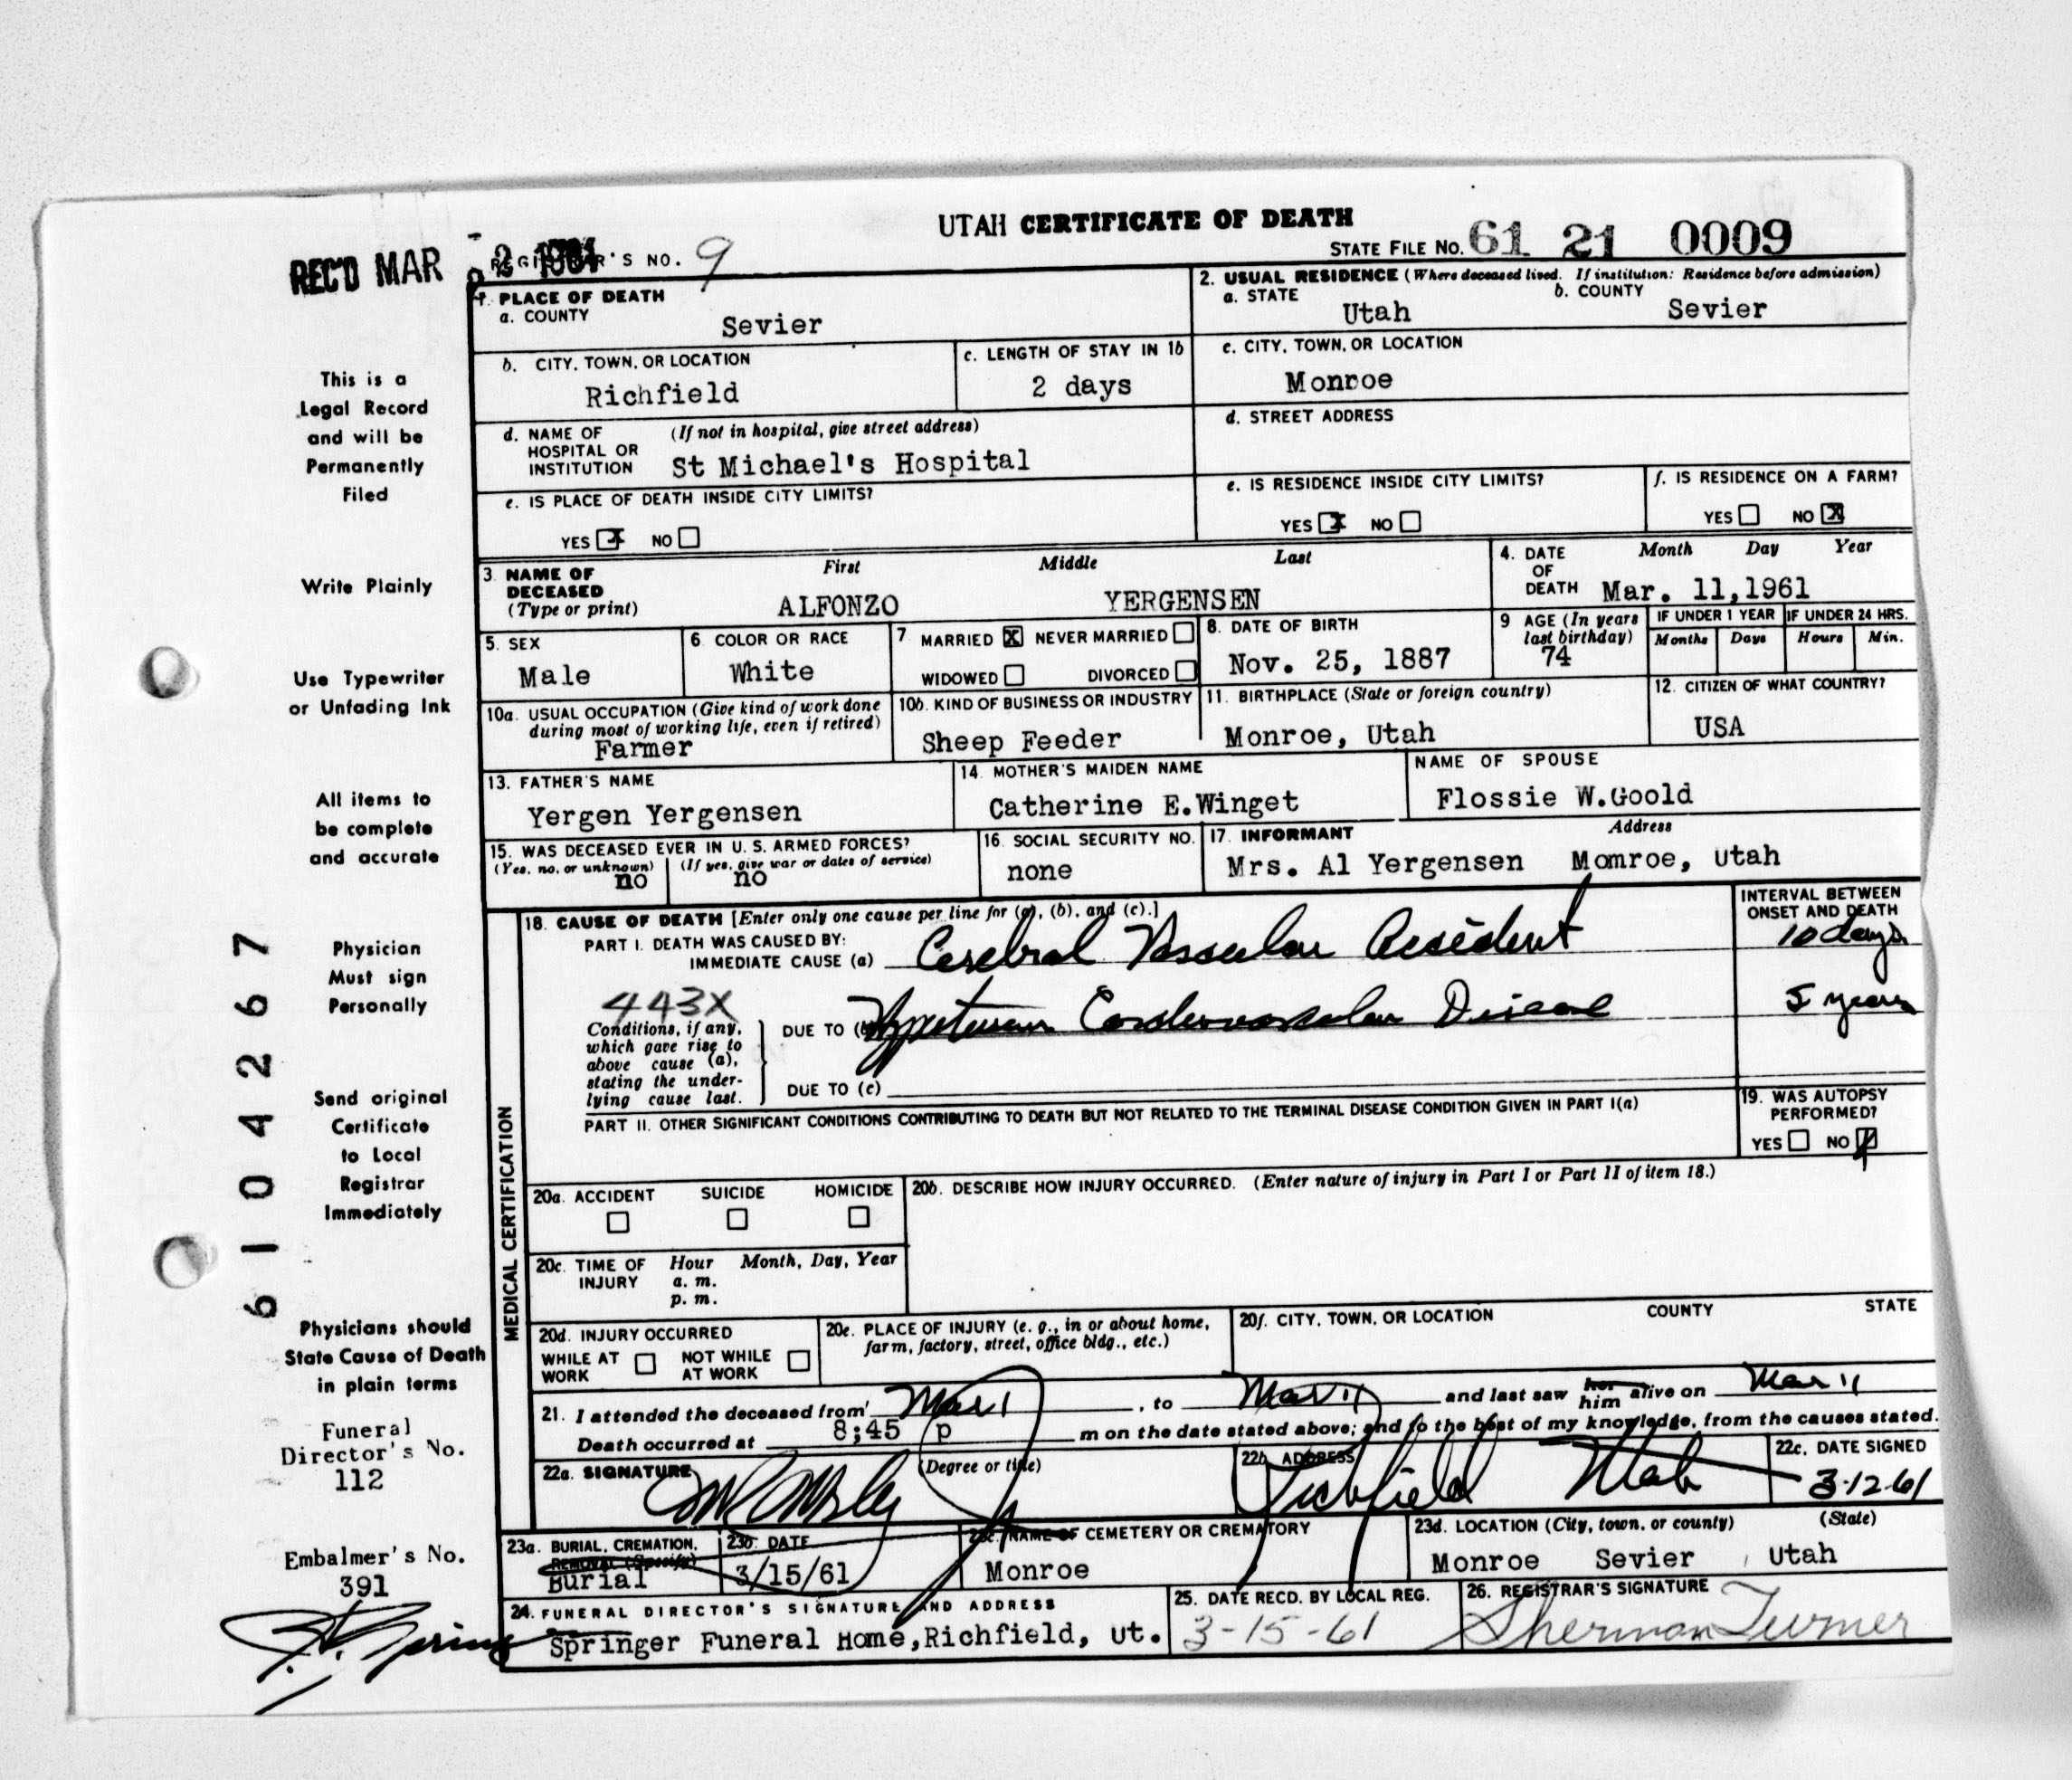 UTAH CERTIFICATE OF DEATH
REC'D MAR 1961 REGISTRAR'S NO. 9
STATE FILE NO. 61 21 0009
1. PLACE OF DEATH
a. COUNTY
Sevier
2. USUAL RESIDENCE (Where deceased lived. If institution: Residence before admission)
a. STATE b. COUNTY
Utah Sevier
b. CITY, TOWN, OR LOCATION
Richfield
c. LENGTH OF STAY IN 1b
2 days
c. CITY, TOWN, OR LOCATION
Monroe
d. NAME OF HOSPITAL OR INSTITUTION (If not in hospital, give street address)
St Michael's Hospital
d. STREET ADDRESS
e. IS PLACE OF DEATH INSIDE CITY LIMITS?
YES X NO
e. IS RESIDENCE INSIDE CITY LIMITS?
YES X NO
f. IS RESIDENCE ON A FARM?
YES NO X
3. NAME OF DECEASED (Type or print)
First Middle Last
ALFONZO YERGENSEN
4. DATE OF DEATH Month Day Year
Mar. 11,1961
5. SEX
Male
6. COLOR OR RACE
White
7. MARRIED X NEVER MARRIED
WIDOWED DIVORCED
8. DATE OF BIRTH
Nov. 25, 1887
9 AGE (In years last birthday)
74
IF UNDER 1 YEAR IF UNDER 24 HRS.
Months Days Hours Min.
10a. USUAL OCCUPATION (Give kind of work done during most of working life, even if retired)
Farmer
10b. KIND OF BUSINESS OR INDUSTRY
Sheep Feeder
11. BIRTHPLACE (State or foreign country)
Monroe, Utah
12. CITIZEN OF WHAT COUNTRY?
USA
13. FATHER'S NAME
Yergen Yergensen
14. MOTHER'S MAIDEN NAME
Catherine E.Winget
NAME OF SPOUSE
Flossie W.Goold
15. WAS DECEASED EVER IN U. S. ARMED FORCES?
(Yes, no, or unknown) (If yes, give war or dates of service)
no no
16. SOCIAL SECURITY NO.
none
17. INFORMANT Address
Mrs. Al Yergensen Momroe, Utah
18. CAUSE OF DEATH [Enter only one cause per line for (a), (b), and (c).]
INTERVAL BETWEEN ONSET AND DEATH
PART I. DEATH WAS CAUSED BY:
IMMEDIATE CAUSE (a) Cerebral Vascular Accident 10 days
443X
Conditions, if any, which gave rise to above cause (a), stating the underlying cause last.
DUE TO (b) Hypertensive Cardiovascular Disease 5 years
DUE TO (c)
PART II. OTHER SIGNIFICANT CONDITIONS CONTRIBUTING TO DEATH BUT NOT RELATED TO THE TERMINAL DISEASE CONDITION GIVEN IN PART I(a)
19. WAS AUTOPSY PERFORMED?
YES NO
MEDICAL CERTIFICATION
20a. ACCIDENT SUICIDE HOMICIDE
20b. DESCRIBE HOW INJURY OCCURRED. (Enter nature of injury in Part I or Part II of item 18.)
20c. TIME OF INJURY Hour Month, Day, Year
a. m.
p. m.
20d. INJURY OCCURRED
WHILE AT WORK NOT WHILE AT WORK
20e. PLACE OF INJURY (e. g., in or about home, farm, factory, street, office bldg., etc.)
20f. CITY, TOWN, OR LOCATION COUNTY STATE
21. I attended the deceased from Mar 1, to Mar 11 and last saw her him alive on Mar 11
Death occurred at 8;45 p m on the date stated above; and to the best of my knowledge, from the causes stated.
22a. SIGNATURE (Degree or title)
22b. ADDRESS
Richfield Utah
22c. DATE SIGNED
3-12-61
23a. BURIAL, CREMATION, REMOVAL (Specify)
Burial
23b. DATE
3/15/61
23c. NAME OF CEMETERY OR CREMATORY
Monroe
23d. LOCATION (City, town, or county) (State)
Monroe Sevier Utah
24. FUNERAL DIRECTOR'S SIGNATURE AND ADDRESS
Springer Funeral Home,Richfield, Ut.
25. DATE RECD. BY LOCAL REG.
3-15-61
26. REGISTRAR'S SIGNATURE
Sherman Turner
This is a
Legal Record
and will be
Permanently
Filed
Write Plainly
Use Typewriter
or Unfading Ink
All items to
be complete
and accurate
Physician
Must sign
Personally
Send original
Certificate
to Local
Registrar
Immediately
Physicians should
State Cause of Death
in plain terms
Funeral
Director's No.
112
Embalmer's No.
391
6104267